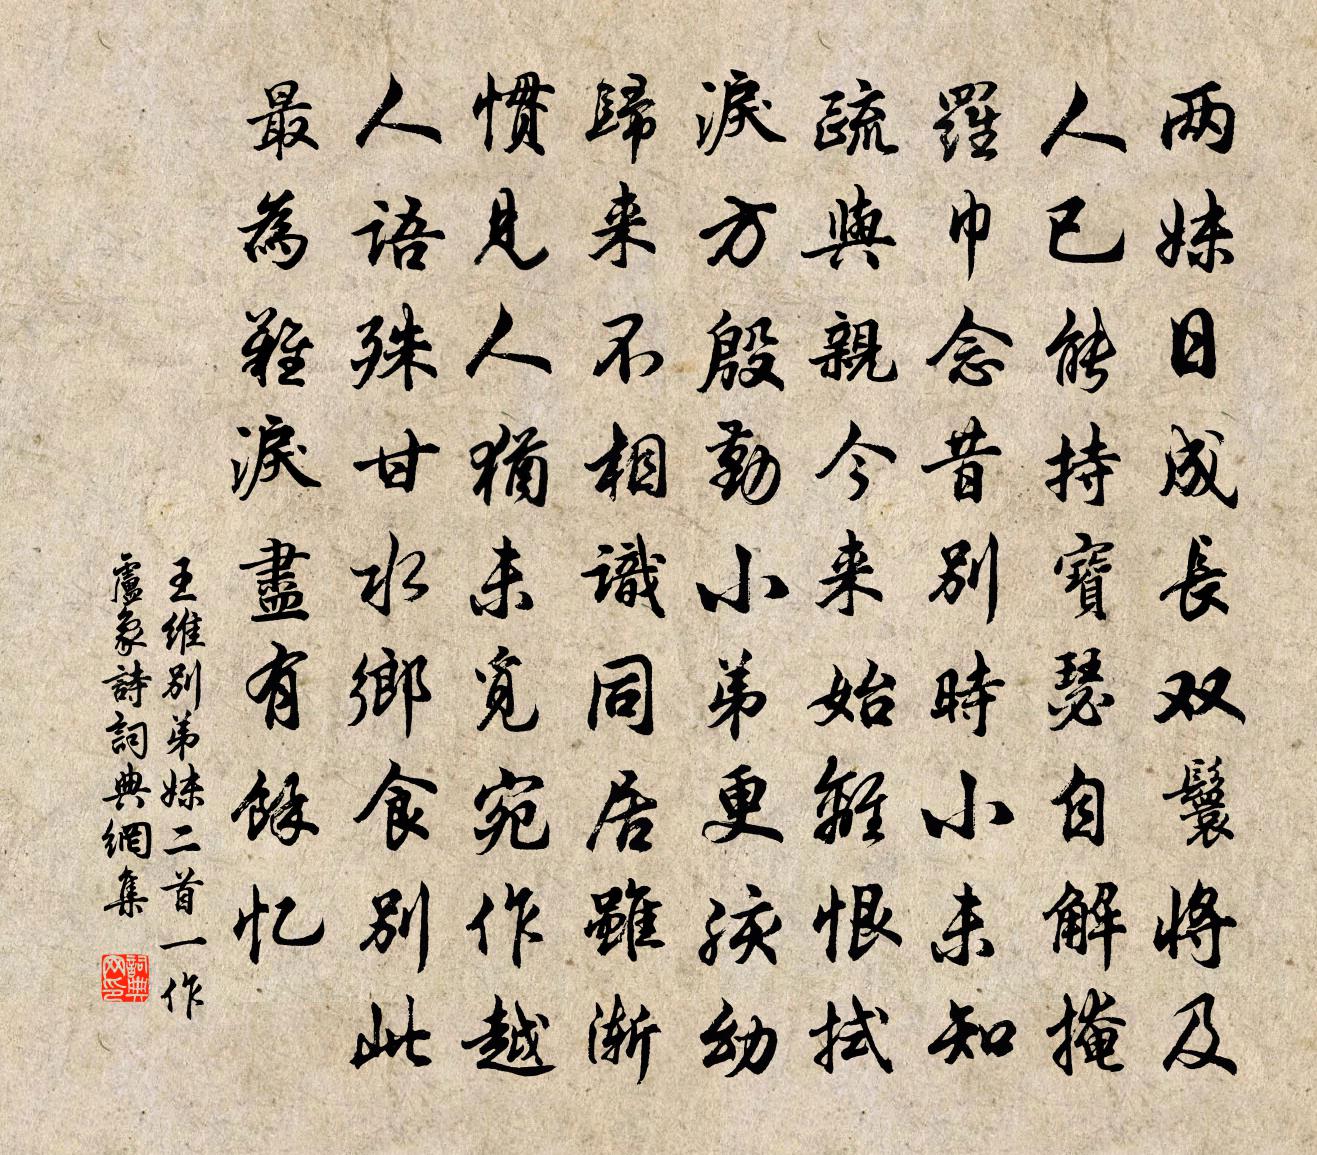 两妹日成長双鬟將及
人已能持寶瑟自解掩
羅巾念昔別時小未知
疏與親今来始離恨拭
淚方殷勤小弟更孩幼
歸来不相識同居雖漸
慣見人猶未覓宛作越
人語殊甘水鄉食別此
最為難淚盡有餘忆
王維別弟妹二首一作
盧象詩詞典網集
詞典
网印